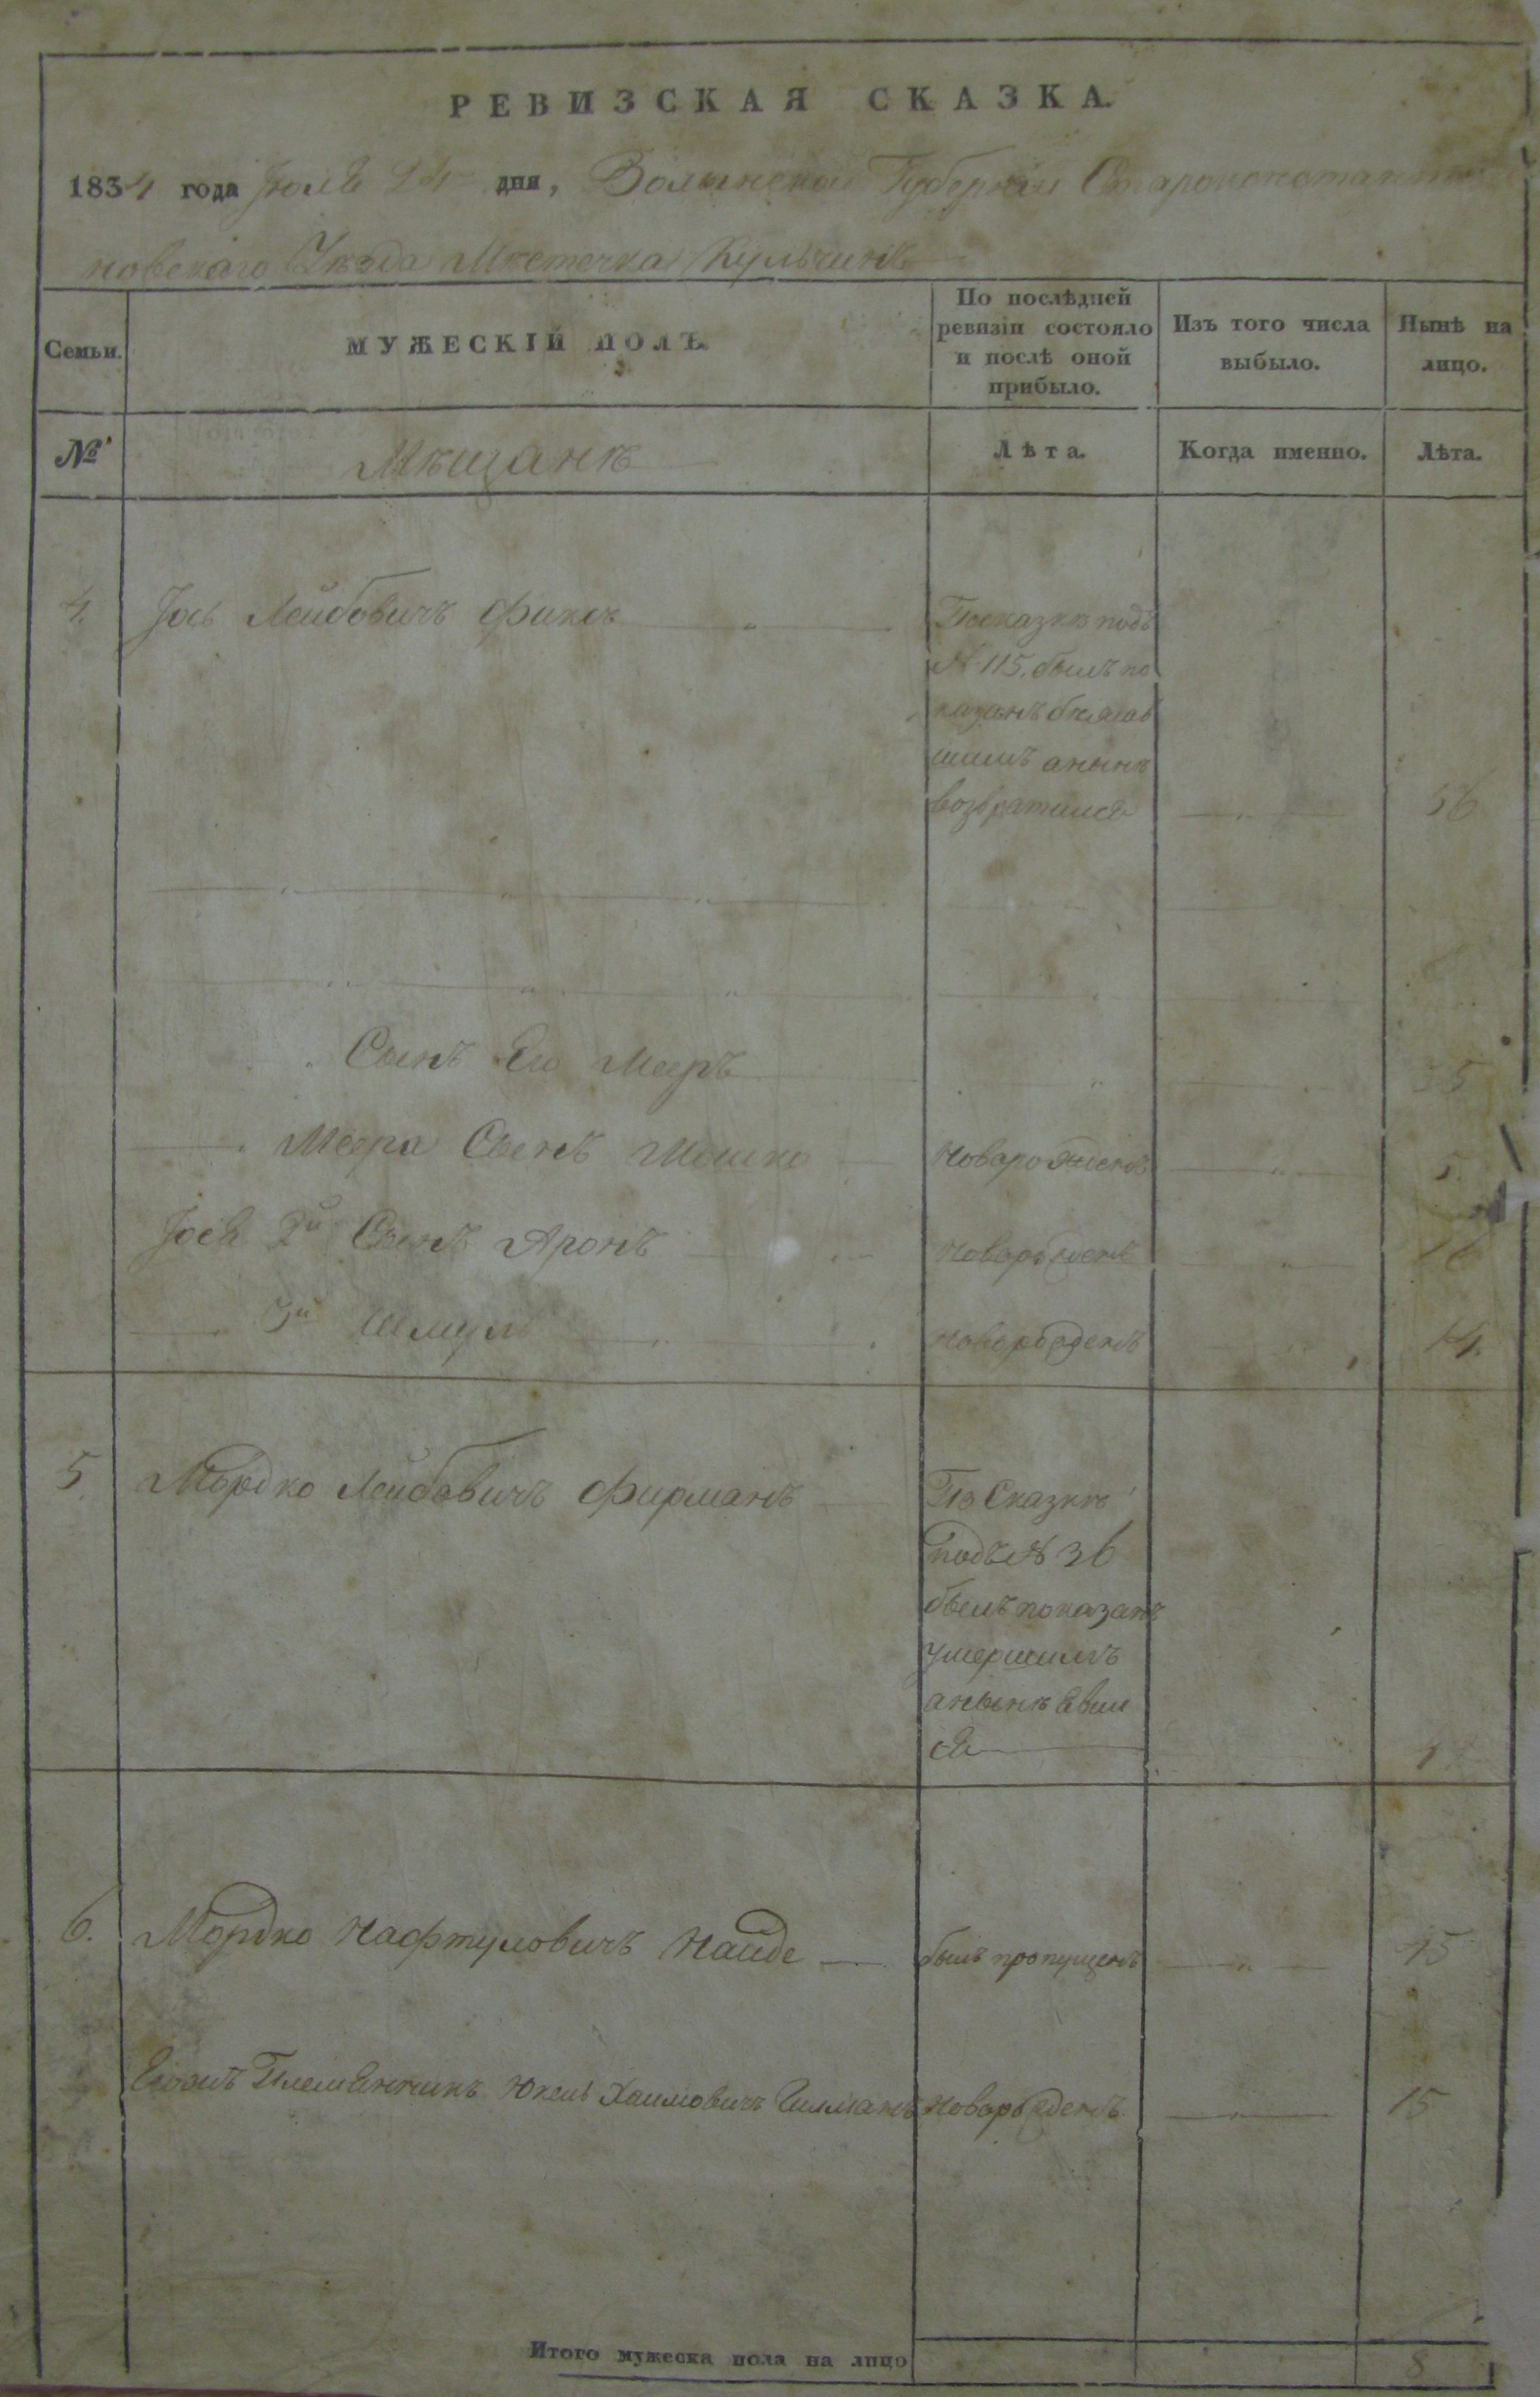 РЕВИЗСКАЯ СКАЗКА.
1834 года Июля 24 дня, Волынской Губернии Староконстанти
новскаго Уѣзда Мѣстечка Кульчинъ
Семьи.
МУЖЕСКІЙ ПОЛЪ.
По послѣдней
ревизіи состояло
и послѣ оной
прибыло.
Изъ того числа
выбыло.
Нынѣ на
лицо.
№
Мѣщанѣ
Лѣта.
Когда именно.
Лѣта.
4. Іось Лейбовичъ Фиксъ
Посказкѣ подъ
№ 115. былъ по
казанъ бѣжав
шимъ анынѣ
возвратился 56
Сынъ Его Мееръ 35
Меера Сынъ Мошко Новорожденъ 5
Іося 2й Сынъ Аронъ Новорожденъ 16
3й Шмуль Новорожденъ 14.
5 Мордко Лейбовичъ Фирманъ
По Сказкѣ
подъ № 36
былъ показанъ
умершимъ
анынѣ явил
ся
6. Мордко Нафтуловичъ Найде былъ пропущенъ 45
Егожъ Племянникъ Юкель Хаимовичъ Гилманъ Новорожденъ 15
Итого мужеска пола на лицо 8